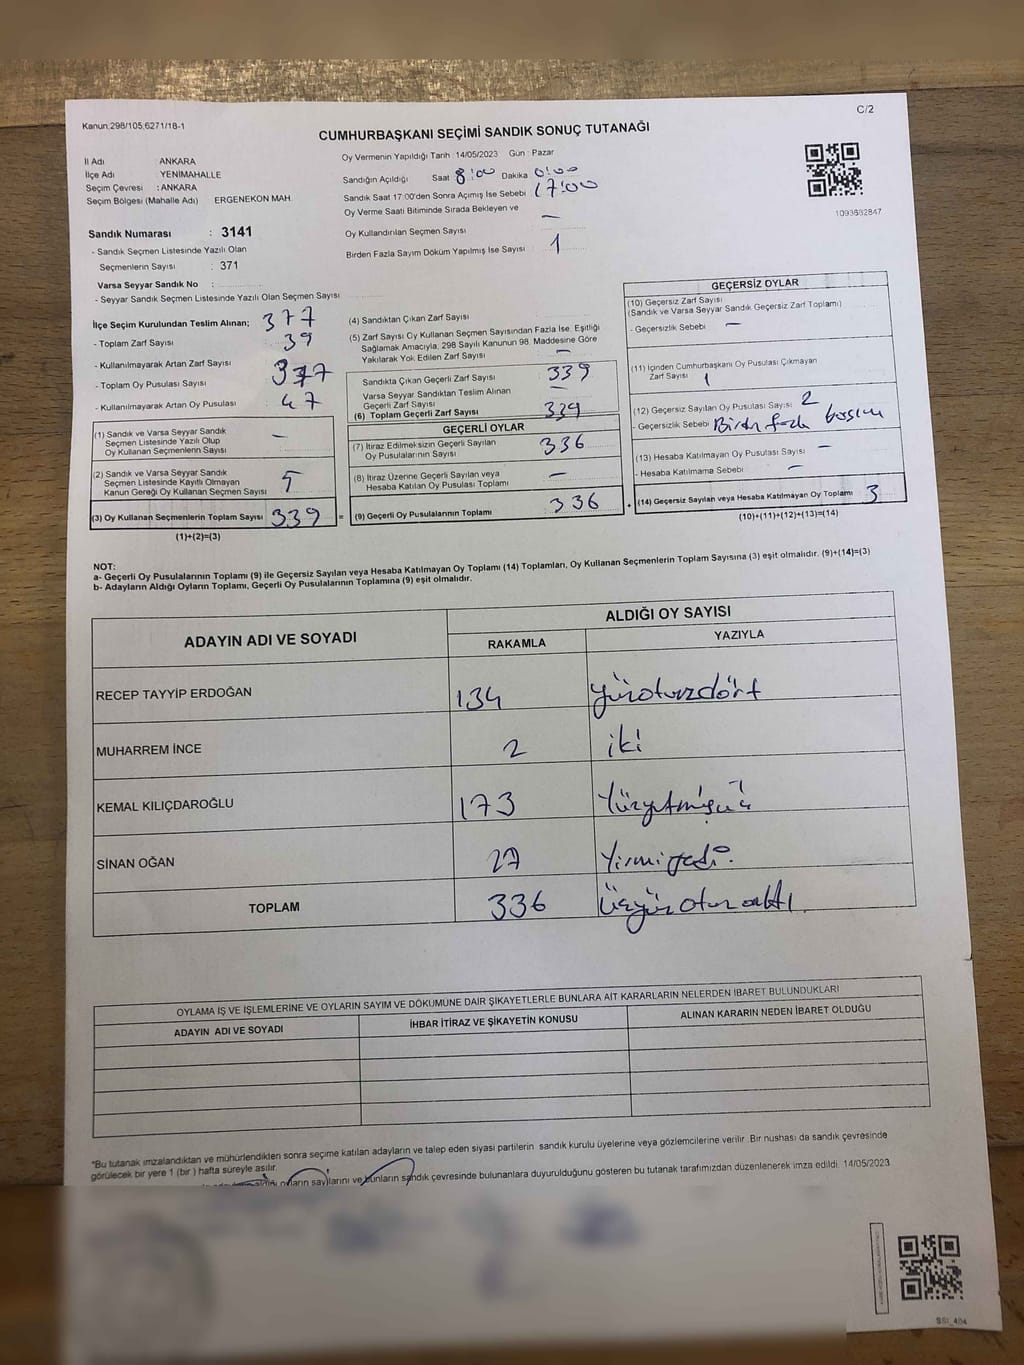 C/2
Kanun;298/105,6271/18-1
CUMHURBAŞKANI SEÇİMİ SANDIK SONUÇ TUTANAĞI
İl Adı : ANKARA
İlçe Adı : YENİMAHALLE
Seçim Çevresi : ANKARA
Seçim Bölgesi (Mahalle Adı) ERGENEKON MAH.
Oy Vermenin Yapıldığı Tarih : 14/05/2023 Gün : Pazar
Sandığın Açıldığı Saat 8:00 Dakika 0:00
Sandık Saat 17:00'den Sonra Açımış İse Sebebi 17:00
Oy Verme Saati Bitiminde Sırada Bekleyen ve
Oy Kullandırılan Seçmen Sayısı —
Birden Fazla Sayım Döküm Yapılmış İse Sayısı 1
1093682847
Sandık Numarası : 3141
- Sandık Seçmen Listesinde Yazılı Olan
Seçmenlerin Sayısı : 371
Varsa Seyyar Sandık No :
- Seyyar Sandık Seçmen Listesinde Yazılı Olan Seçmen Sayısı
İlçe Seçim Kurulundan Teslim Alınan; 377
- Toplam Zarf Sayısı 39
- Kullanılmayarak Artan Zarf Sayısı
- Toplam Oy Pusulası Sayısı 377
- Kullanılmayarak Artan Oy Pusulası 47
(1) Sandık ve Varsa Seyyar Sandık
Seçmen Listesinde Yazılı Olup
Oy Kullanan Seçmenlerin Sayısı —
(2) Sandık ve Varsa Seyyar Sandık
Seçmen Listesinde Kayıtlı Olmayan
Kanun Gereği Oy Kullanan Seçmen Sayısı 5
(3) Oy Kullanan Seçmenlerin Toplam Sayısı 339 =
(1)+(2)=(3)
(4) Sandıktan Çıkan Zarf Sayısı
(5) Zarf Sayısı Oy Kullanan Seçmen Sayısından Fazla İse, Eşitliği
Sağlamak Amacıyla, 298 Sayılı Kanunun 98. Maddesine Göre
Yakılarak Yok Edilen Zarf Sayısı —
Sandıkta Çıkan Geçerli Zarf Sayısı 339
Varsa Seyyar Sandıktan Teslim Alınan
Geçerli Zarf Sayısı —
(6) Toplam Geçerli Zarf Sayısı 339
GEÇERLİ OYLAR
(7) İtiraz Edilmeksizin Geçerli Sayılan
Oy Pusulalarının Sayısı 336
(8) İtiraz Üzerine Geçerli Sayılan veya
Hesaba Katılan Oy Pusulası Toplamı —
(9) Geçerli Oy Pusulalarının Toplamı 336 +
GEÇERSİZ OYLAR
(10) Geçersiz Zarf Sayısı
(Sandık ve Varsa Seyyar Sandık Geçersiz Zarf Toplamı)
- Geçersizlik Sebebi —
(11) İçinden Cumhurbaşkanı Oy Pusulası Çıkmayan
Zarf Sayısı 1
(12) Geçersiz Sayılan Oy Pusulası Sayısı 2
- Geçersizlik Sebebi Birden fazla basım
(13) Hesaba Katılmayan Oy Pusulası Sayısı —
- Hesaba Katılmama Sebebi —
(14) Geçersiz Sayılan veya Hesaba Katılmayan Oy Toplamı 3
(10)+(11)+(12)+(13)=(14)
NOT:
a- Geçerli Oy Pusulalarının Toplamı (9) ile Geçersiz Sayılan veya Hesaba Katılmayan Oy Toplamı (14) Toplamları, Oy Kullanan Seçmenlerin Toplam Sayısına (3) eşit olmalıdır. (9)+(14)=(3)
b- Adayların Aldığı Oyların Toplamı, Geçerli Oy Pusulalarının Toplamına (9) eşit olmalıdır.
ADAYIN ADI VE SOYADI ALDIĞI OY SAYISI
RAKAMLA YAZIYLA
RECEP TAYYİP ERDOĞAN 134 yüzotuzdört
MUHARREM İNCE 2 iki
KEMAL KILIÇDAROĞLU 173 Yüzyetmişüç
SİNAN OĞAN 27 Yirmiyedi.
TOPLAM 336 üçyüzotuzaltı
OYLAMA İŞ VE İŞLEMLERİNE VE OYLARIN SAYIM VE DÖKÜMÜNE DAİR ŞİKAYETLERLE BUNLARA AİT KARARLARIN NELERDEN İBARET BULUNDUKLARI
ADAYIN ADI VE SOYADI İHBAR İTİRAZ VE ŞİKAYETİN KONUSU ALINAN KARARIN NEDEN İBARET OLDUĞU
*Bu tutanak imzalandıktan ve mühürlendikten sonra seçime katılan adayların ve talep eden siyasi partilerin sandık kurulu üyelerine veya gözlemcilerine verilir. Bir nushası da sandık çevresinde
görülecek bir yere 1 (bir ) hafta süreyle asılır.
oyların sayılarını ve bunların sandık çevresinde bulunanlara duyurulduğunu gösteren bu tutanak tarafımızdan düzenlenerek imza edildi. 14/05/2023